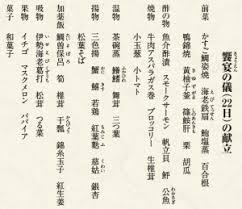 饗宴の儀（22日）の献立
前菜
かすご鯛姿焼 海老鉄扇 鮑塩蒸 百合根
鴨錦焼 黄柚子釜 篠鮫肝 栗 胡瓜
酢の物
魚介酢漬 スモークサーモン 帆立貝 鮃 公魚
焼物
牛肉アスパラガス巻 ブロッコリー 生椎茸
小玉葱 小トマト
温物
茶碗蒸 鱶鰭 舞茸 三つ葉
揚物
三色揚 蟹 鱚 若鶏 紅葉麩 慈姑 銀杏
松葉そば
加薬飯
鯛曽保呂 筍 椎茸 干瓢 錦糸玉子 紅生姜
吸物
伊勢海老葛打 松茸 つる菜
果物
イチゴ マスクメロン パパイア
菓子
和菓子